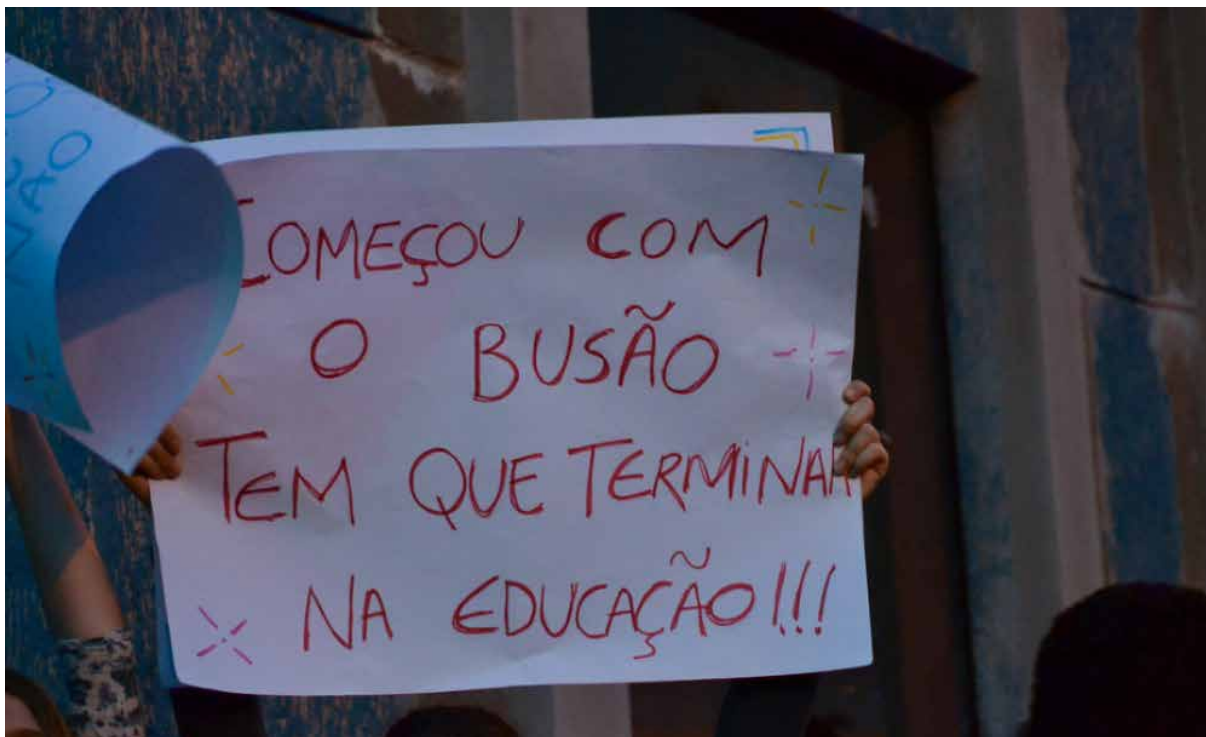 NÃO
COMEÇOU COM
O BUSÃO
TEM QUE TERMINAR
NA EDUCAÇÃO!!!